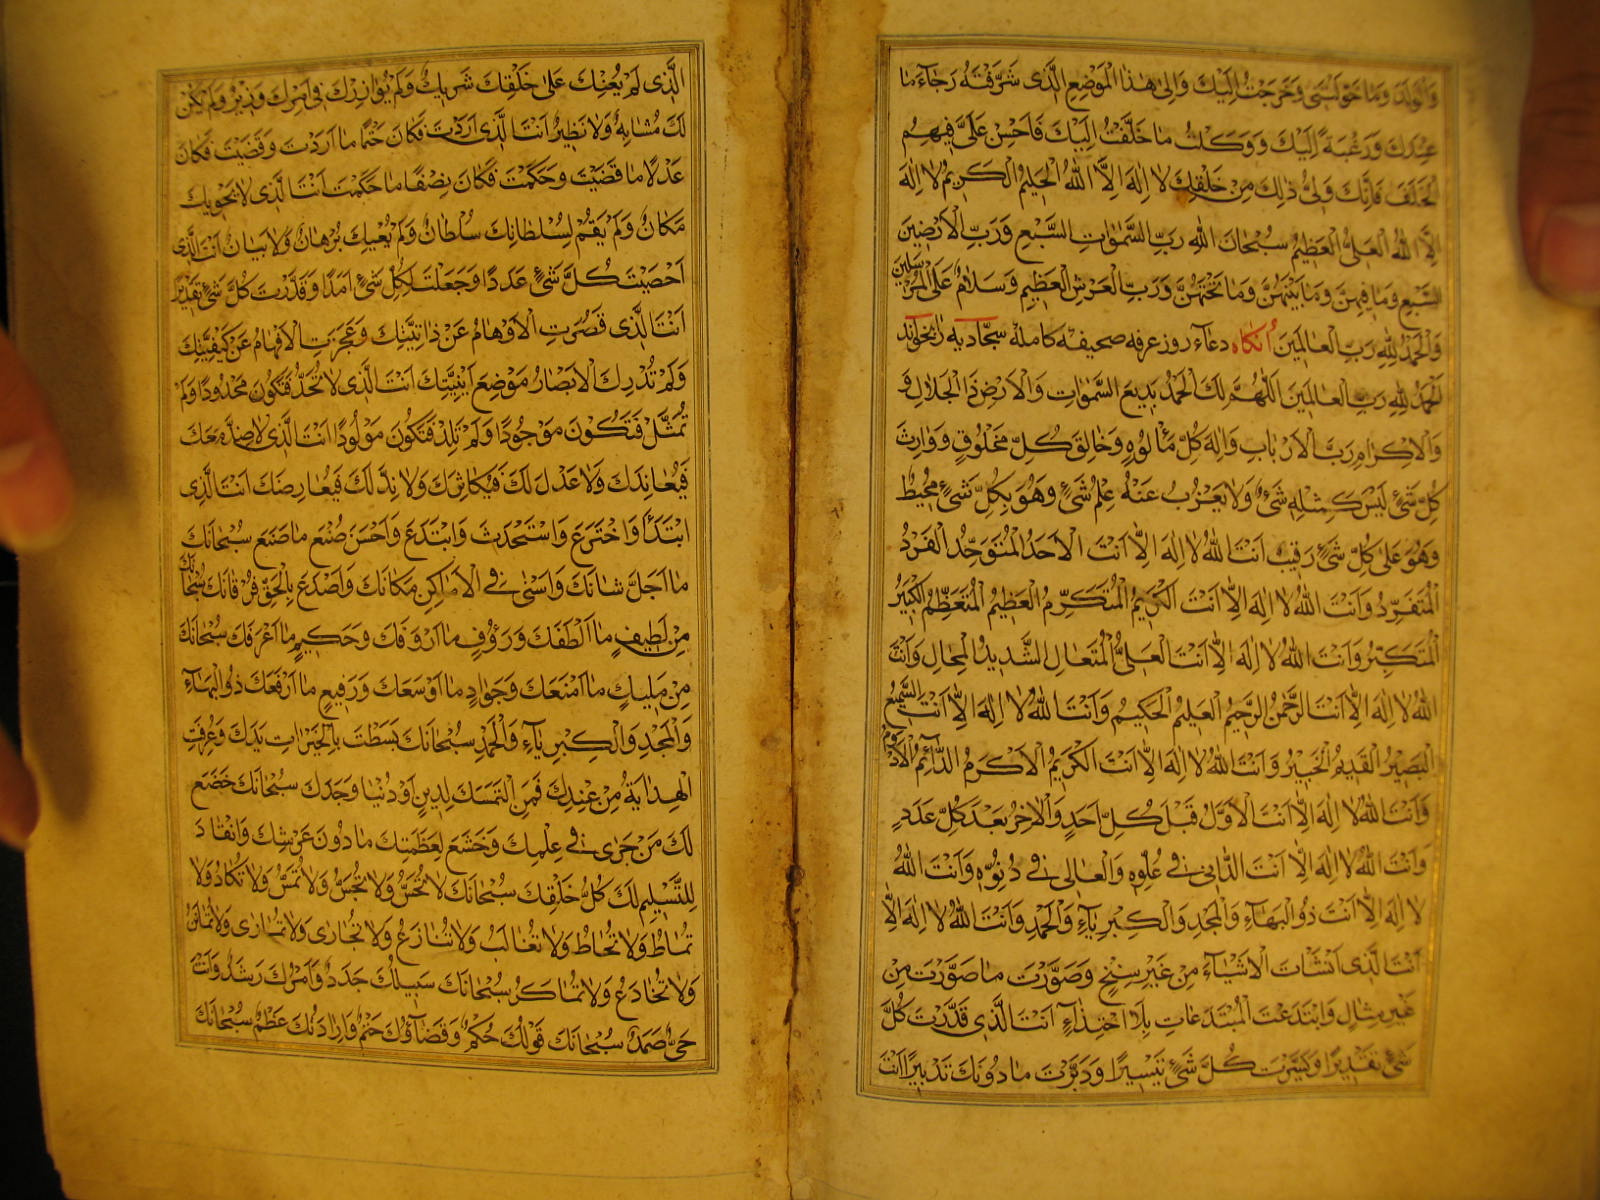 وَالْوَلَدِ وَمَا خَوَّلْتَنِی وَخَرَجْتُ اِلَیْكَ وَاِلٰی هٰذَا الْمَوْضِعِ الَّذی شَرَّفْتَهُ رَجٰآءَ مٰا
عِنْدَكَ وَرَغْبَةً اِلَیْكَ وَوَكَلْتُ مٰا خَلَّفْتُ اِلَیْكَ فَاَحْسِنْ عَلَیَّ فیهِمُ
الْخَلَفَ فَاِنَّكَ وَلِیُّ ذٰلِكَ مِنْ خَلْقِكَ لٰا اِلٰهَ اِلَّا اللّٰهُ الْحَلیمُ الْكَریمُ لٰا اِلٰهَ
اِلَّا اللّٰهُ الْعَلِیُّ الْعَظیمُ سُبْحٰانَ اللّٰهِ رَبِّ السَّمٰوٰاتِ السَّبْعِ وَرَبِّ الْاَرَضینَ
السَّبْعِ وَمٰا فیهِنَّ وَمٰا بَیْنَهُنَّ وَمٰا تَحْتَهُنَّ وَرَبِّ الْعَرْشِ الْعَظیمِ وَسَلٰامٌ عَلَی الْمُرْسَلینَ
وَالْحَمْدُ لِلّٰهِ رَبِّ الْعٰالَمینَ اُنكاه دعآء روز عرفه صحیفهٔ كامله سجّادیه را بخواند
اَلْحَمْدُ لِلّٰهِ رَبِّ الْعٰالَمینَ اَللّٰهُمَّ لَكَ الْحَمْدُ بَدیعَ السَّمٰوٰاتِ وَالْاَرْضِ ذَا الْجَلٰالِ وَ
وَالْاِكْرٰامِ رَبَّ الْاَرْبٰابِ وَاِلٰهَ كُلِّ مَأْلُوهٍ وَخٰالِقَ كُلِّ مَخْلُوقٍ وَوٰارِثَ
كُلِّ شَیْءٍ لَیْسَ كَمِثْلِهِ شَیْءٌ وَلٰا یَعْزُبُ عَنْهُ عِلْمُ شَیْءٍ وَهُوَ بِكُلِّ شَیْءٍ مُحیطٌ
وَهُوَ عَلٰی كُلِّ شَیْءٍ رَقیبٌ اَنْتَ اللّٰهُ لٰا اِلٰهَ اِلَّا اَنْتَ الْاَحَدُ الْمُتَوَحِّدُ الْفَرْدُ
الْمُتَفَرِّدُ وَاَنْتَ اللّٰهُ لٰا اِلٰهَ اِلَّا اَنْتَ الْكَریمُ الْمُتَكَرِّمُ الْعَظیمُ الْمُتَعَظِّمُ الْكَبیرُ
الْمُتَكَبِّرُ وَاَنْتَ اللّٰهُ لٰا اِلٰهَ اِلَّا اَنْتَ الْعَلِیُّ الْمُتَعٰالِ الشَّدیدُ الْمِحٰالِ وَاَنْتَ
اللّٰهُ لٰا اِلٰهَ اِلَّا اَنْتَ الرَّحْمٰنُ الرَّحیمُ الْعَلیمُ الْحَكیمُ وَاَنْتَ اللّٰهُ لٰا اِلٰهَ اِلَّا اَنْتَ السَّمیعُ
الْبَصیرُ الْقَدیمُ الْخَبیرُ وَاَنْتَ اللّٰهُ لٰا اِلٰهَ اِلَّا اَنْتَ الْكَریمُ الْاَكْرَمُ الدّٰآئِمُ الْاَدْوَمُ
وَاَنْتَ اللّٰهُ لٰا اِلٰهَ اِلَّا اَنْتَ الْاَوَّلُ قَبْلَ كُلِّ اَحَدٍ وَالْاٰخِرُ بَعْدَ كُلِّ عَدَدٍ
وَاَنْتَ اللّٰهُ لٰا اِلٰهَ اِلَّا اَنْتَ الدّٰانی فی عُلُوِّهِ وَالْعٰالی فی دُنُوِّهِ وَاَنْتَ اللّٰهُ
لٰا اِلٰهَ اِلَّا اَنْتَ ذُو الْبَهٰآءِ وَالْمَجْدِ وَالْكِبْرِیٰآءِ وَالْحَمْدِ وَاَنْتَ اللّٰهُ لٰا اِلٰهَ اِلَّا
اَنْتَ الَّذی اَنْشَاْتَ الْاَشْیٰآءَ مِنْ غَیْرِ سِنْخٍ وَصَوَّرْتَ مٰا صَوَّرْتَ مِنْ
غَیْرِ مِثٰالٍ وَابْتَدَعْتَ الْمُبْتَدَعٰاتِ بِلَا احْتِذٰآءٍ اَنْتَ الَّذی قَدَّرْتَ كُلَّ
شَیْءٍ تَقْدیرًا وَیَسَّرْتَ كُلَّ شَیْءٍ تَیْسیرًا وَدَبَّرْتَ مٰا دُونَكَ تَدْبیرًا اَنْتَ
الَّذی لَمْ یُعِنْكَ عَلٰی خَلْقِكَ شَریكٌ وَلَمْ یُوٰازِرْكَ فی اَمْرِكَ وَزیرٌ وَلَمْ یَكُنْ
لَكَ مُشٰابِهٌ وَلٰا نَظیرٌ اَنْتَ الَّذی اَرَدْتَ فَكٰانَ حَتْمًا مٰا اَرَدْتَ وَقَضَیْتَ فَكٰانَ
عَدْلًا مٰا قَضَیْتَ وَحَكَمْتَ فَكٰانَ نِصْفًا مٰا حَكَمْتَ اَنْتَ الَّذی لٰا یَحْویكَ
مَكٰانٌ وَلَمْ یَقُمْ لِسُلْطٰانِكَ سُلْطٰانٌ وَلَمْ یُعْیِكَ بُرْهٰانٌ وَلٰا بَیٰانٌ اَنْتَ الَّذی
اَحْصَیْتَ كُلَّ شَیْءٍ عَدَدًا وَجَعَلْتَ لِكُلِّ شَیْءٍ اَمَدًا وَقَدَّرْتَ كُلَّ شَیْءٍ تَقْدیرًا
اَنْتَ الَّذی قَصُرَتِ الْاَوْهٰامُ عَنْ ذٰاتِیَّتِكَ وَعَجَزَتِ الْاَفْهٰامُ عَنْ كَیْفِیَّتِكَ
وَلَمْ تُدْرِكِ الْاَبْصٰارُ مَوْضِعَ اَیْنِیَّتِكَ اَنْتَ الَّذی لٰا تُحَدُّ فَتَكُونَ مَحْدُودًا وَلَمْ
تُمَثَّلْ فَتَكُونَ مَوْجُودًا وَلَمْ تَلِدْ فَتَكُونَ مَوْلُودًا اَنْتَ الَّذی لٰا ضِدَّ مَعَكَ
فَیُعٰانِدَكَ وَلٰا عَدْلَ لَكَ فَیُكٰاثِرَكَ وَلٰا نِدَّ لَكَ فَیُعٰارِضَكَ اَنْتَ الَّذی
ابْتَدَاَ وَاخْتَرَعَ وَاسْتَحْدَثَ وَابْتَدَعَ وَاَحْسَنَ صُنْعَ مٰا صَنَعَ سُبْحٰانَكَ
مٰا اَجَلَّ شٰانَكَ وَاَسْنٰی فِی الْاَمٰاكِنِ مَكٰانَكَ وَاَصْدَعَ بِالْحَقِّ فُرْقٰانَكَ سُبْحٰانَكَ
مِنْ لَطیفٍ مٰا اَلْطَفَكَ وَرَؤُفٍ مٰا اَرْوَفَكَ وَحَكیمٍ مٰا اَعْرَفَكَ سُبْحٰانَكَ
مِنْ مَلیكٍ مٰا اَمْنَعَكَ وَجَوٰادٍ مٰا اَوْسَعَكَ وَرَفیعٍ مٰا اَرْفَعَكَ ذُو الْبَهٰآءِ
وَالْمَجْدِ وَالْكِبْرِیٰآءِ وَالْحَمْدِ سُبْحٰانَكَ بَسَطْتَ بِالْخَیْرٰاتِ یَدَكَ وَعُرِفَتِ
الْهِدٰایَةُ مِنْ عِنْدِكَ فَمَنِ الْتَمَسَكَ لِدینٍ اَوْ دُنْیٰا وَجَدَكَ سُبْحٰانَكَ خَضَعَ
لَكَ مَنْ جَرٰی فی عِلْمِكَ وَخَشَعَ لِعَظَمَتِكَ مٰا دُونَ عَرْشِكَ وَانْقٰادَ
لِلتَّسْلیمِ لَكَ كُلُّ خَلْقِكَ سُبْحٰانَكَ لٰا تُحَسُّ وَلٰا تُجَسُّ وَلٰا تُمَسُّ وَلٰا تُكٰادُ وَلٰا
تُمٰاطُ وَلٰا تُحٰاطُ وَلٰا تُغٰالَبُ وَلٰا تُنٰازَعُ وَلٰا تُجٰاریٰ وَلٰا تُمٰاریٰ
وَلٰا تُخٰادَعُ وَلٰا تُمٰاكَرُ سُبْحٰانَكَ سَبیلُكَ جَدَدٌ وَاَمْرُكَ رَشَدٌ وَاَنْتَ
حَیٌّ صَمَدٌ سُبْحٰانَكَ قَوْلُكَ حُكْمٌ وَقَضٰآؤُكَ حَتْمٌ وَاِرٰادَتُكَ عَظْمٌ سُبْحٰانَكَ